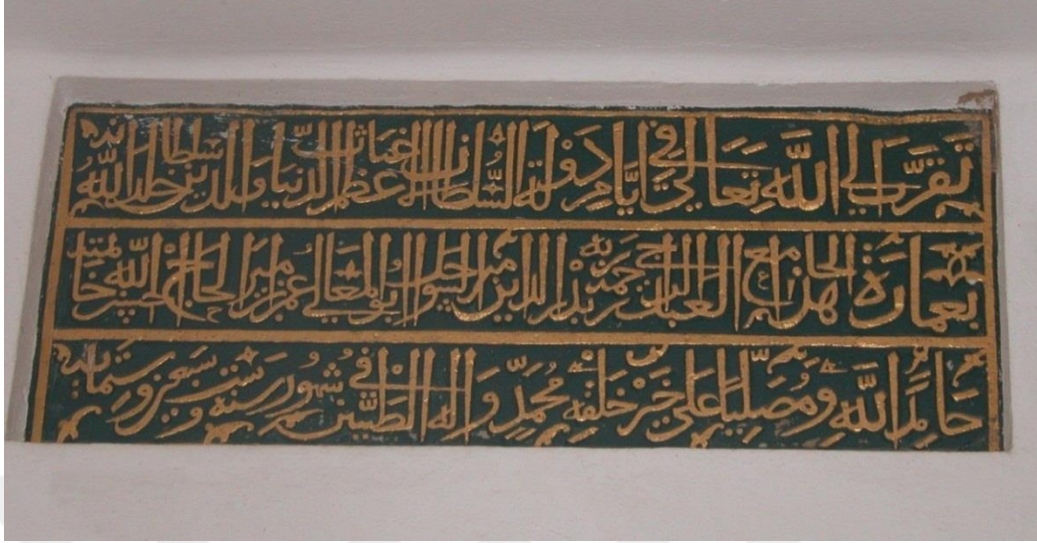 تَقَرَّبَ إلى اللَّهِ تَعَالى في أيَّامِ دَوْلَةِ السُّلطان الاعظم غياث الدنيا والدين خلد اللهُ سلطانه
بعمارة هذا الجامع العبد الراجي رحمة ربه بدر الدين امير السواحل ابو المعالي عمر بن امير الحاج احسن الله خاتمته
حامداً للَّهِ ومُصَلّياً على خَيْرِ خلقهِ مُحَمَّدٍ وَاله الطَّيّبين في شهور سنة ست وسبعين وستمائة